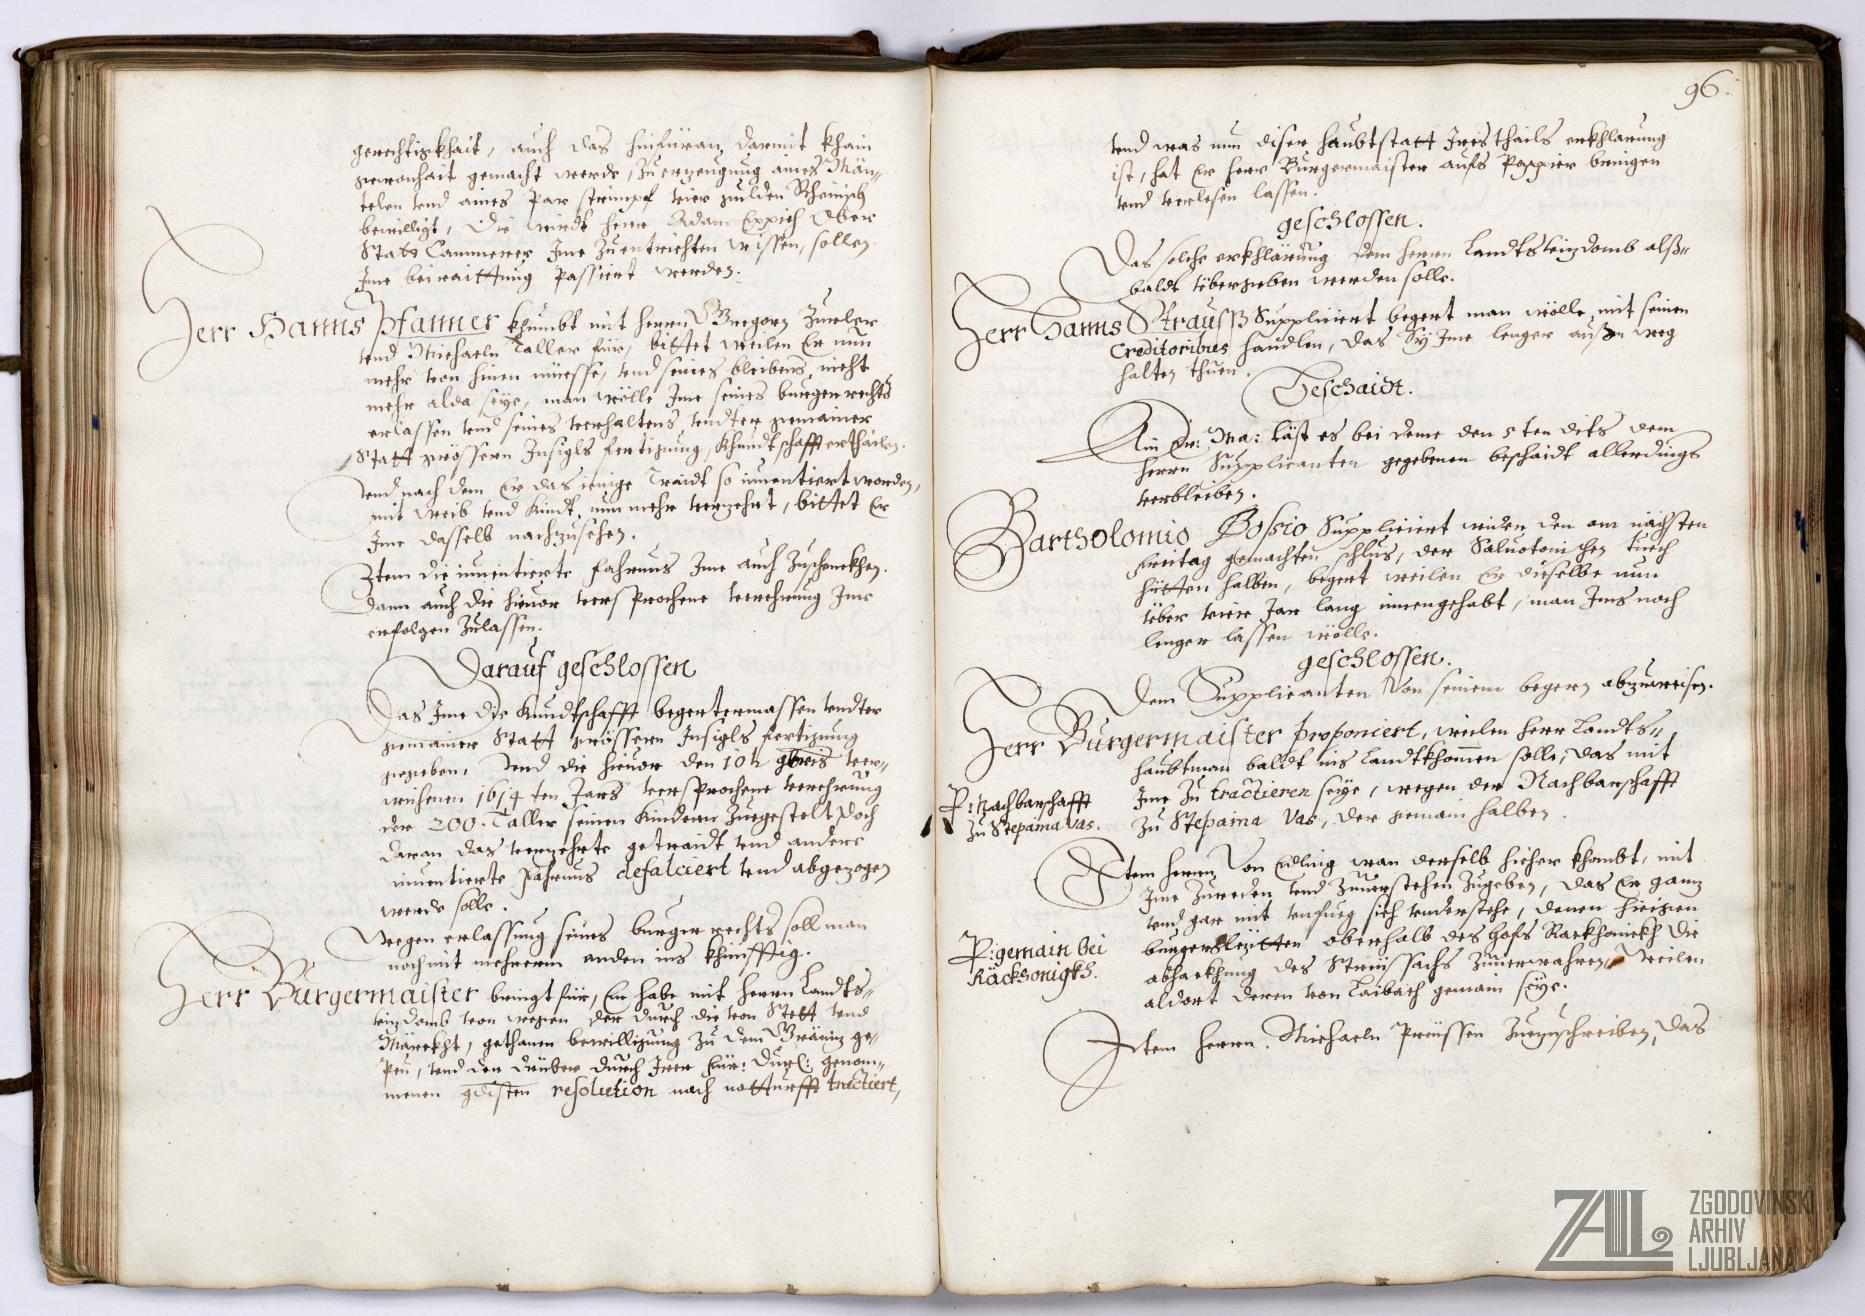 gerechtigkhait, auch das hinfüran darmit khain
gewonhait gemacht werde, zu erzeugung aines Män-
telen vnd aines par strimpf vier gulden Rheinisch
bewilligt, die wirdt herr Adam Eppich Ober
Statt Cammerer Ime zuentrichten wissen, sollen
Ime bei raittung passiert werden.
Herr Hanns Pfanner khumbt mit herrn Gregorn
vnd Michaeln Taller für, bittet weilen Er nun
mehr von hinen müesse, vnd seines bleibens nicht
mehr alda seye, man wölle Ime seines burgerrechts
erlassen vnd seines verhaltens vndter gemainer
Statt grössern Insigls fertigung, Khundtschafft erthailen.
vnd nach dem Er das ienige Traidt so inuentiert worden,
mit Weib vnd Kindt, nun mehr verzehrt, bittet Er
Ime dasselb nachzusehen.
Item die inuentierte fahrnus Ime auch zuschenckhen.
dann auch die hieuor versprochene verehrung Ime
erfolgen zulassen.
Darauf geschlossen
Das Ime die Kundtschafft begertermassen vndter
gemainer Statt grössern Insigls fertigung
gegeben, vnd die hieuor den 10ten 9bris ver-
wichenen 1614 ten Jars versprochene verehrung
der 200. Taller seinen Kindern zuegestelt, doch
daran das verzehrte getraidt vnd andere
inuentierte Fahrnus defalciert vnd abgezogen
werde solle.
Wegen erlassung seines burgerrechts soll man
noch mit mehrerm anden ins khünfftig.
Herr Burgermaister bringt für, Er habe mit herrn Landts-
vizdomb von wegen der durch die von Stett vnd
Märckht, gethanen bewilligung zu dem Gräniz ge-
peü, vnd den drüber durch Irer Für: Durl: genom-
menen gdisten resolution nach notturfft tractiert,
96.
vnd was nun diser haubtstatt Irs thails erkhlärung
ist, hat Er herr Burgermaister aufs Pappier bringen
vnd verlesen lassen.
geschlossen.
Das solche erkhlärung dem herrn Landtsvizdomb alß-
baldt vbergeben werden solle.
Herr Hanns Strauss Suppliciert begert man wölle mit seinen
Creditoribus handlen, das Sy Ime lenger außen weg
halten thuen.
Beschaidt.
Ain Er: Ma: läst es bei deme den 5ten dits dem
herrn Supplicanten gegebenen beschaidt allerdings
verbleiben.
Bartholomio Bosio Suppliciert wider den am nächsten
Freitag gemachten schlus, der Saluotonischen Tuech
hütten halben, begert weilen Er dieselbe nun
vber viere Jar lang innengehabt, man Ims noch
lenger lassen wölle.
geschlossen.
Dem Supplicanten Von seinem begern abzuweisen.
Herr Burgermaister proponiert, weilen herr Landts-
haubtman baldt ins Landt khommen solle, das mit
Ime zu tractieren seye, wegen der Nachbarschafft
zu Stepaina Vas, der gemain halben.
P: Nachbarschafft
zu Stepaina vas.
Item herrn Von Edling wan derselb hieher khombt, mit
Ime zureden vnd zuuerstehen zugeben, das Er ganz
vnd gar mit vnfueg sich vnderstehe, denen hiesigen
burgersleütten oberhalb des hofs Rackhonickh die
abhackhung des Streüssachs zuuerwahren, Weilen
aldort deren von Laibach gemain seye.
P: gemain bei
Räckhonigkh.
Item herrn Michaeln Preüssen zuezuschreiben, das
ZAL
ZGODOVINSKI
ARHIV
LJUBLJANA